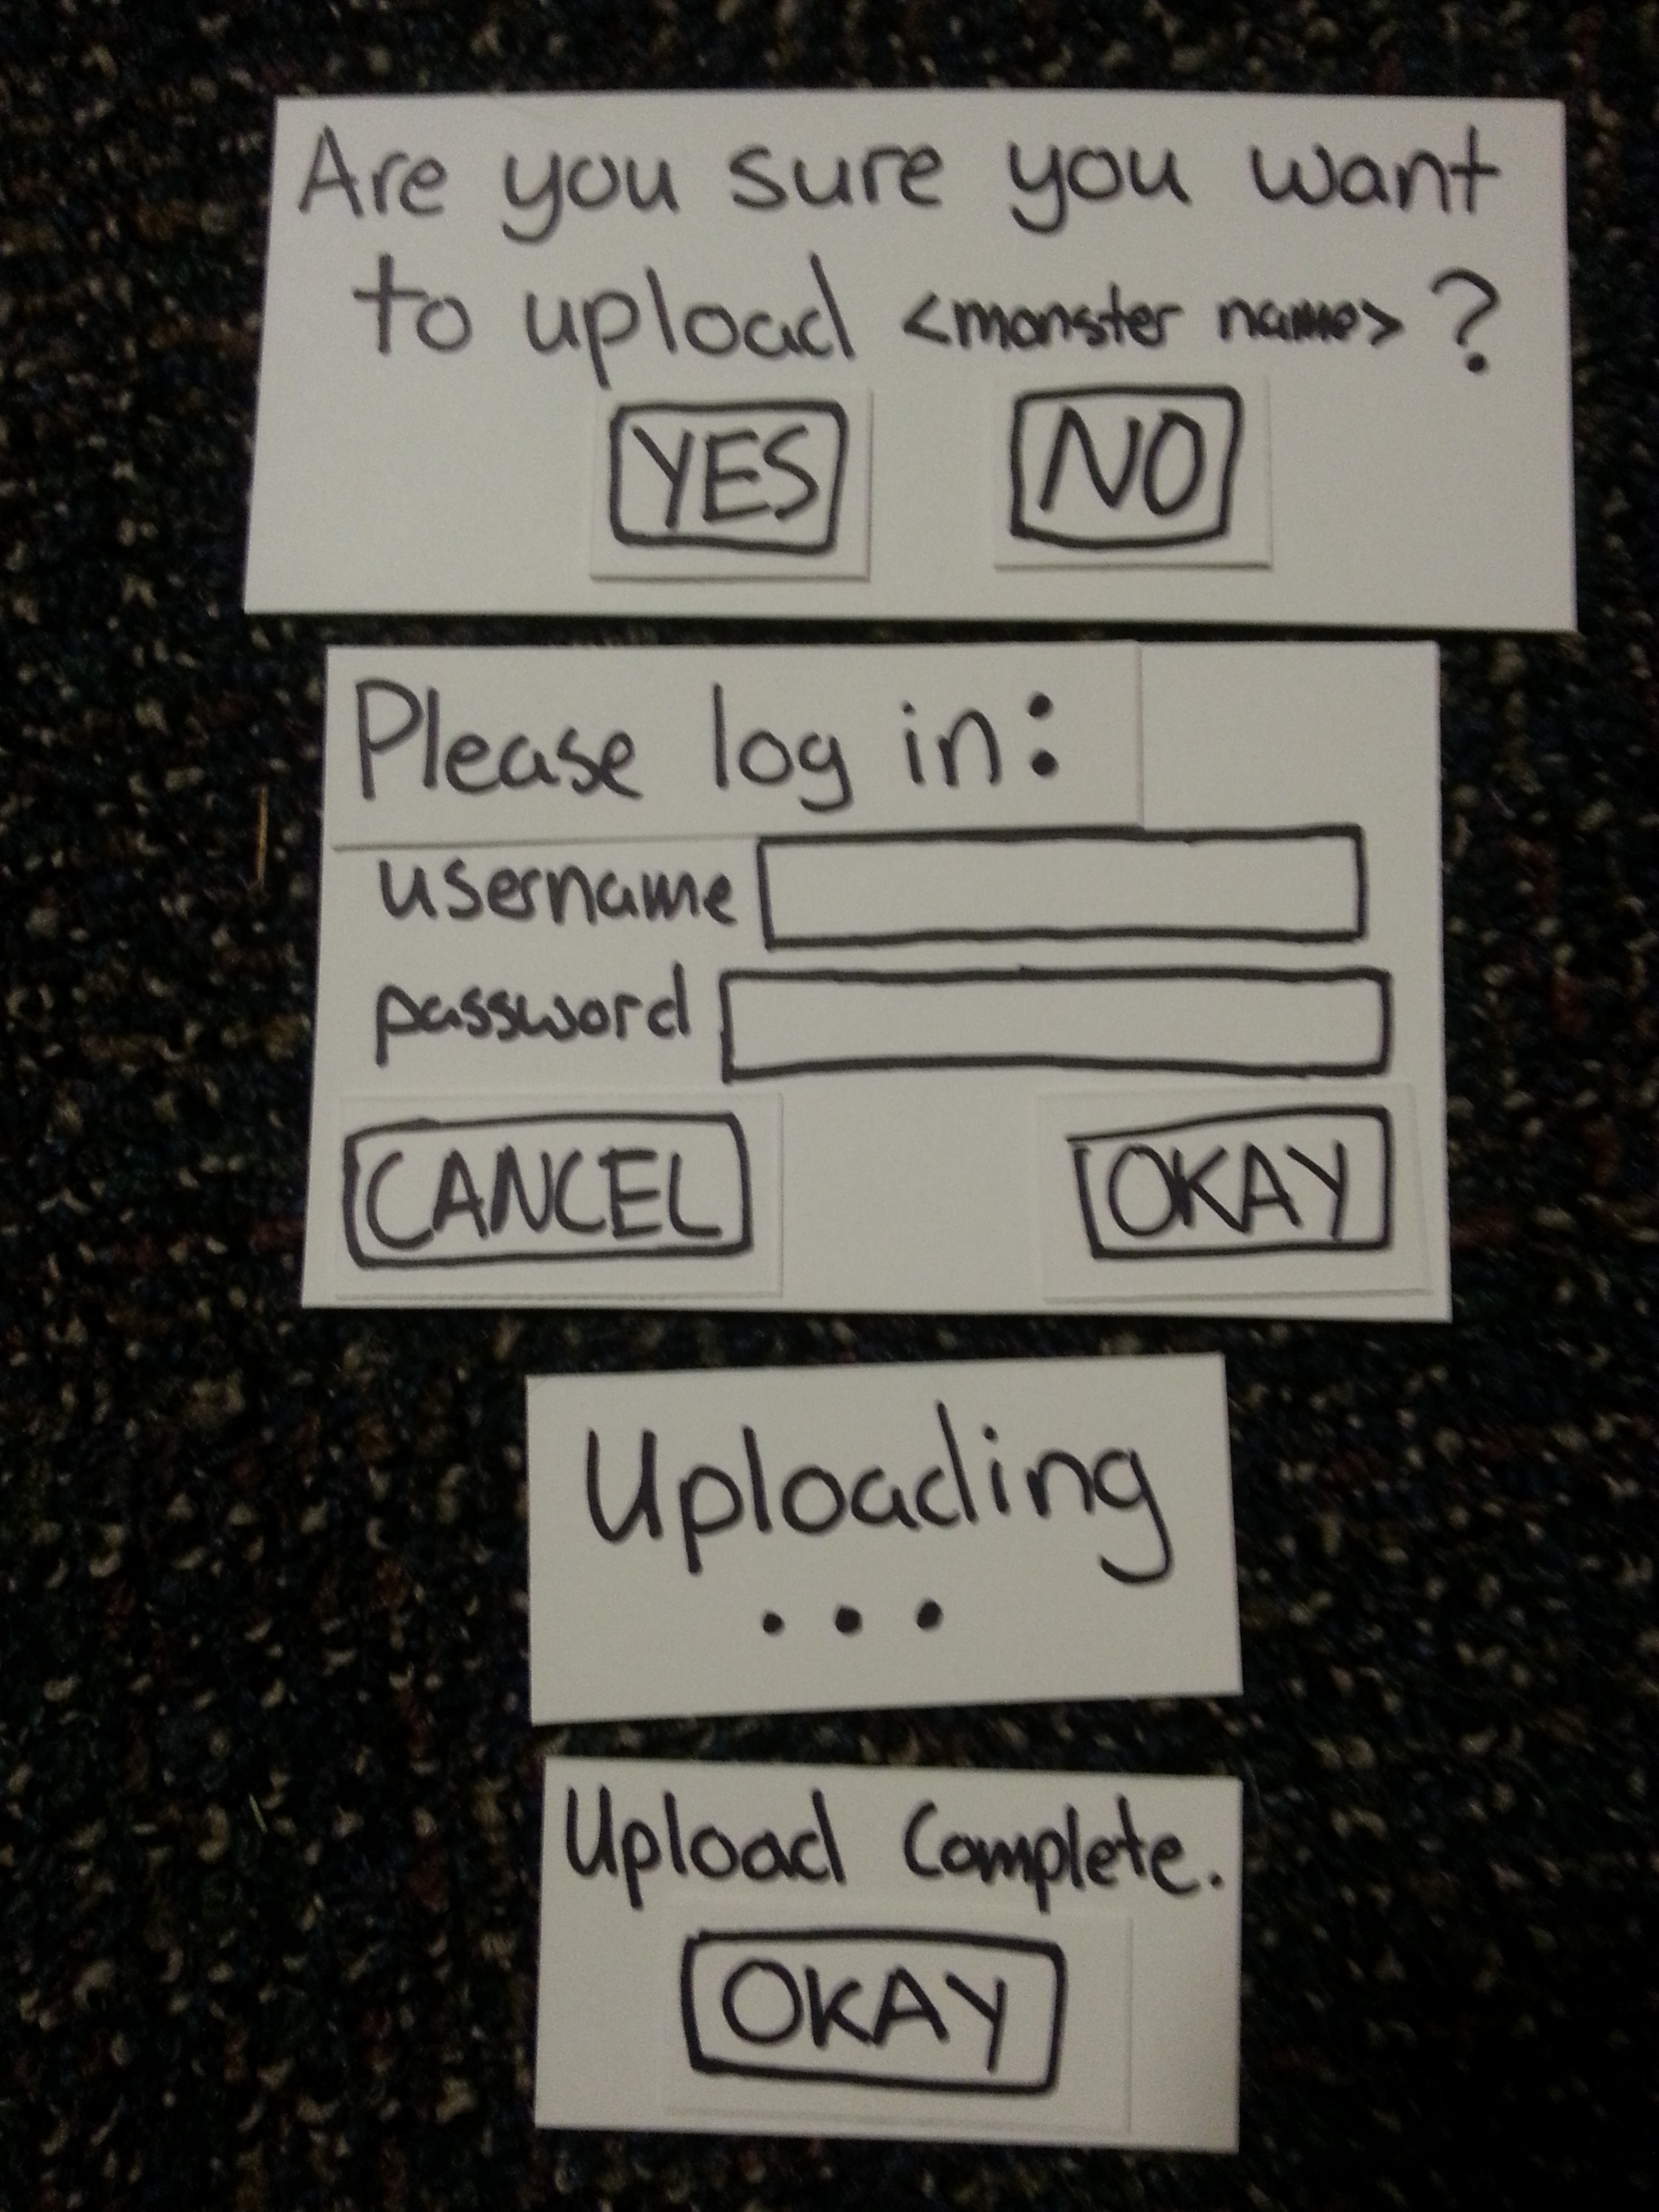 Are you sure you want
to upload <monster name>?
YES NO
Please log in:
username
password
CANCEL OKAY
Uploading
...
Upload Complete.
OKAY